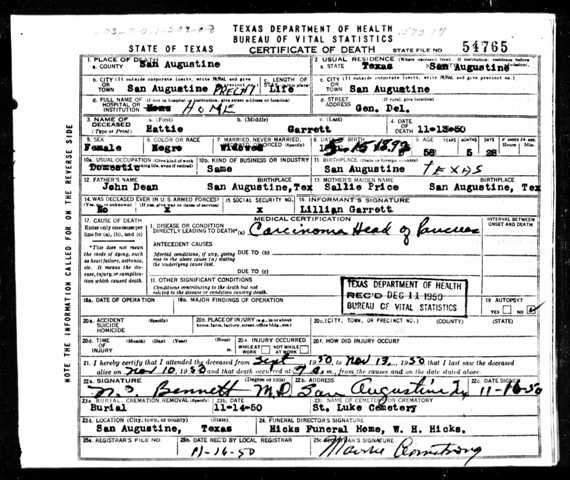 TEXAS DEPARTMENT OF HEALTH
BUREAU OF VITAL STATISTICS
STATE OF TEXAS CERTIFICATE OF DEATH STATE FILE NO. 54765
1. PLACE OF DEATH
a. COUNTY San Augustine
2. USUAL RESIDENCE (Where deceased lived. If institution: residence before
a. STATE Texas b. COUNTY San Augustine
b. CITY (If outside corporate limits, write RURAL and give
OR TOWN San Augustine PRECN 1
c. LENGTH OF STAY Life
c. CITY (If outside corporate limits, write RURAL and give precinct no.)
OR TOWN San Augustine
d. FULL NAME OF (If not in hospital or institution, give street address or location)
HOSPITAL OR INSTITUTION HOME
d. STREET ADDRESS (If rural, give location)
Gen. Del.
3. NAME OF DECEASED (Type or Print)
a. (First) Hattie b. (Middle) c. (Last) Garrett
4. DATE OF DEATH 11-13-50
5. SEX Female
6. COLOR OR RACE Negro
7. MARRIED, NEVER MARRIED, WIDOWED, DIVORCED (Specify) Widowed
8. DATE OF BIRTH
9. AGE YEARS 58 MONTHS 5 DAYS 28 Hours Min.
10a. USUAL OCCUPATION (Give kind of work
Domestic
10b. KIND OF BUSINESS OR INDUSTRY
Same
11. BIRTHPLACE (State or foreign country)
San Augustine TEXAS
12. FATHER'S NAME BIRTHPLACE
John Dean San Augustine, Tex
13. MOTHER'S MAIDEN NAME BIRTHPLACE
Sallie Price San Augustine, Tex
14. WAS DECEASED EVER IN U.S. ARMED FORCES?
No x
15. SOCIAL SECURITY NO.
x
16. INFORMANT'S SIGNATURE
Lillian Garrett
17. CAUSE OF DEATH
Enter only one cause per line for (a), (b), and (c)
*This does not mean the mode of dying, such as heart failure, asthenia, etc. It means the disease, injury, or complication which caused death.
MEDICAL CERTIFICATION
INTERVAL BETWEEN ONSET AND DEATH
I. DISEASE OR CONDITION
DIRECTLY LEADING TO DEATH* (a) Carcinoma Head of Pancreas
ANTECEDENT CAUSES
Morbid conditions, if any, giving rise to the above cause (a) stating the underlying cause last.
DUE TO (b)
DUE TO (c)
II. OTHER SIGNIFICANT CONDITIONS
Conditions contributing to the death but not related to the disease or condition causing death.
TEXAS DEPARTMENT OF HEALTH
REC'D DEC 11 1950
BUREAU OF VITAL STATISTICS
18a. DATE OF OPERATION
18b. MAJOR FINDINGS OF OPERATION
19. AUTOPSY
YES NO
20a. ACCIDENT SUICIDE HOMICIDE
20b. PLACE OF INJURY (e.g., in or about home, farm, factory, street, office bldg., etc.)
20c. (CITY, TOWN, OR PRECINCT NO.) (COUNTY) (STATE)
20d. TIME OF INJURY
20e. INJURY OCCURRED
WHILE AT WORK NOT WHILE AT WORK
20f. HOW DID INJURY OCCUR?
21. I hereby certify that I attended the deceased from Sept 1950 to Nov 13, 1950 that I last saw the deceased
alive on Nov 10, 1950 and that death occurred at 7 a.m., from the causes and on the date stated above.
22a. SIGNATURE (Degree or title) Bennett M D
22b. ADDRESS San Augustine Tx
22c. DATE SIGNED 11-16-50
23a. BURIAL, CREMATION, REMOVAL (Specify)
Burial
23b. DATE 11-14-50
23c. NAME OF CEMETERY OR CREMATORY
St. Luke Cemetery
23d. LOCATION (City, town, or county) (State)
San Augustine, Texas
24. FUNERAL DIRECTOR'S SIGNATURE
Hicks Funeral Home, W. H. Hicks.
25a. REGISTRAR'S FILE NO.
25b. DATE REC'D BY LOCAL REGISTRAR
11-16-50
25c. REGISTRAR'S SIGNATURE
Armstrong
NOTE THE INFORMATION CALLED FOR ON THE REVERSE SIDE